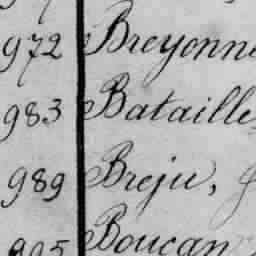 972 Breyonne
983 Bataille
989 Breju,
995 Boucan